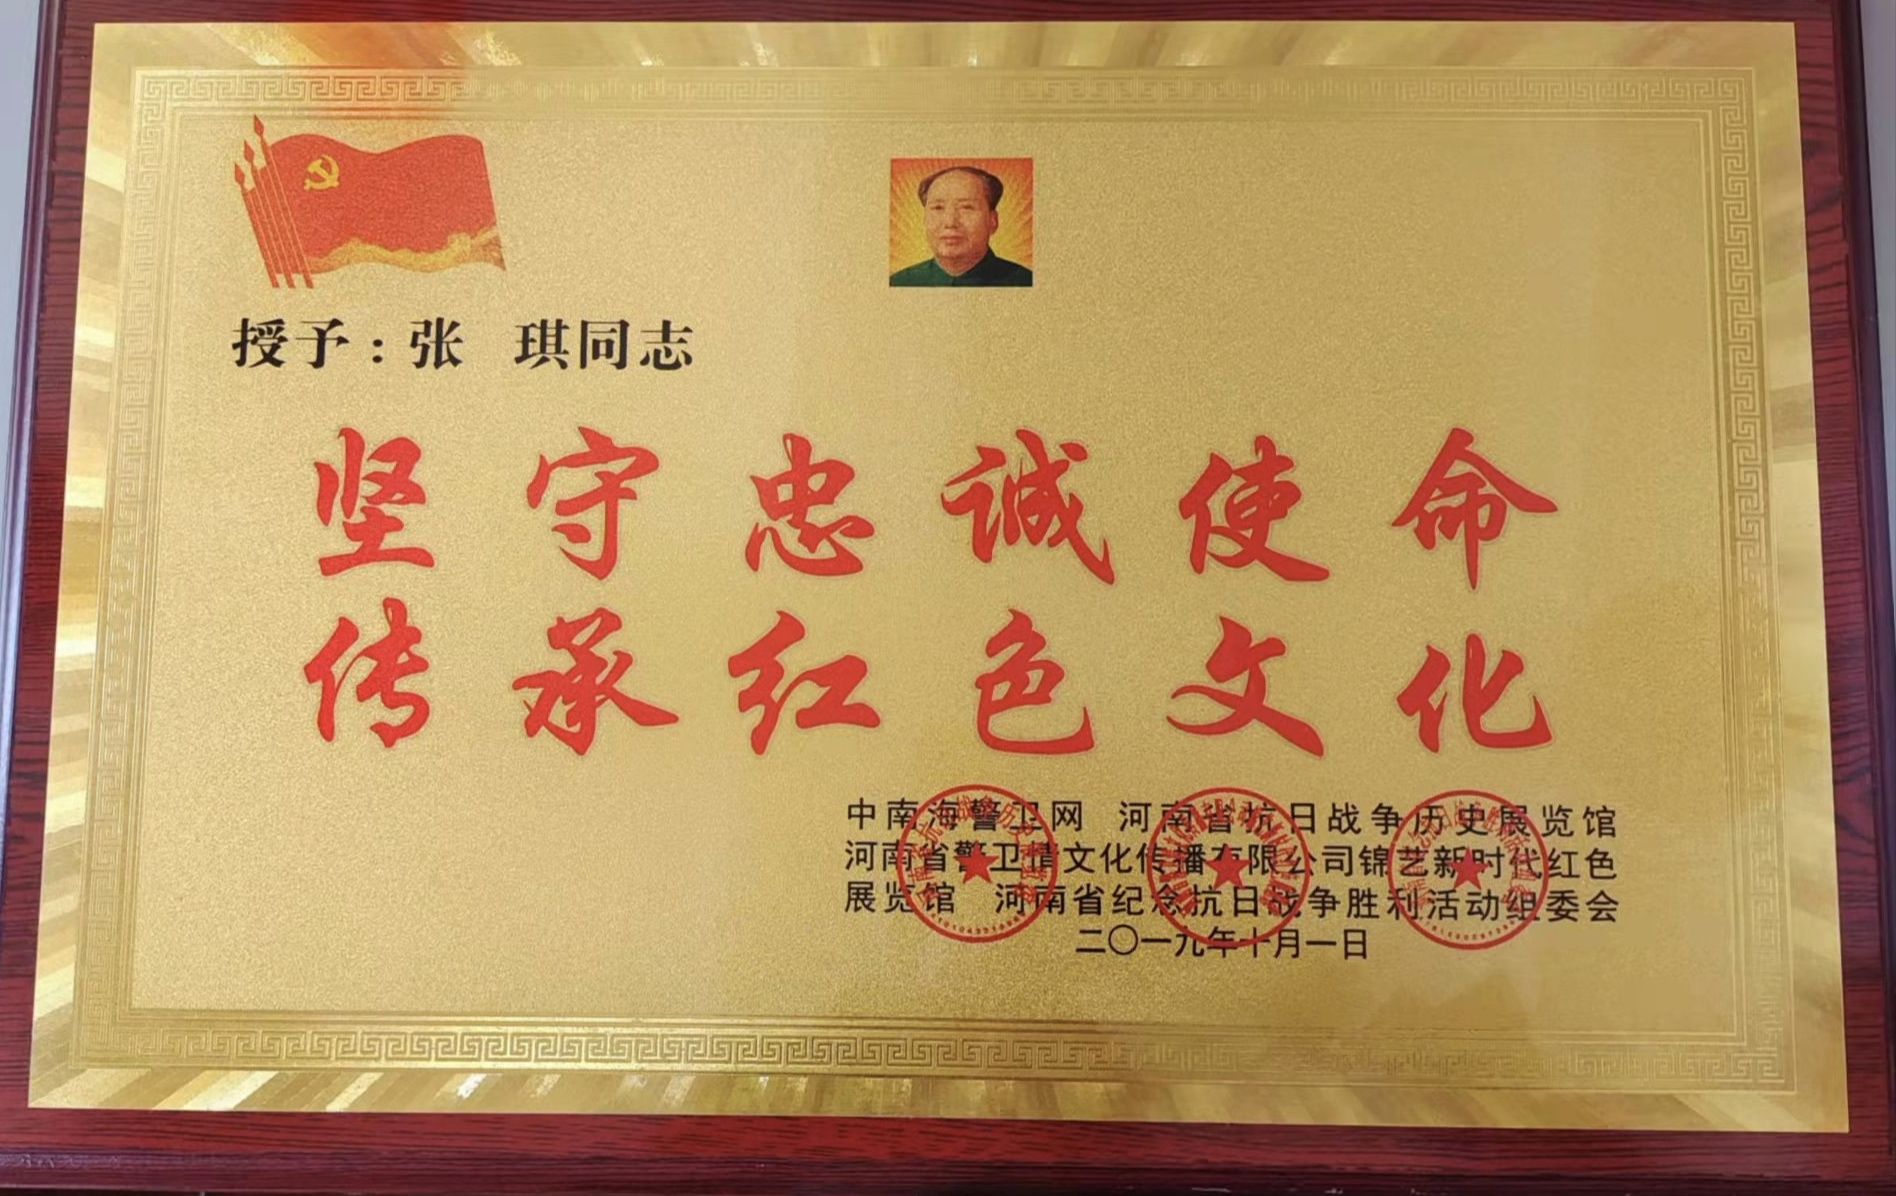 授予：张 琪同志
坚守忠诚使命
传承红色文化
中南海警卫网 河南省抗日战争历史展览馆
河南省警卫情文化传播有限公司锦艺新时代红色
展览馆 河南省纪念抗日战争胜利活动组委会
二〇一九年十月一日